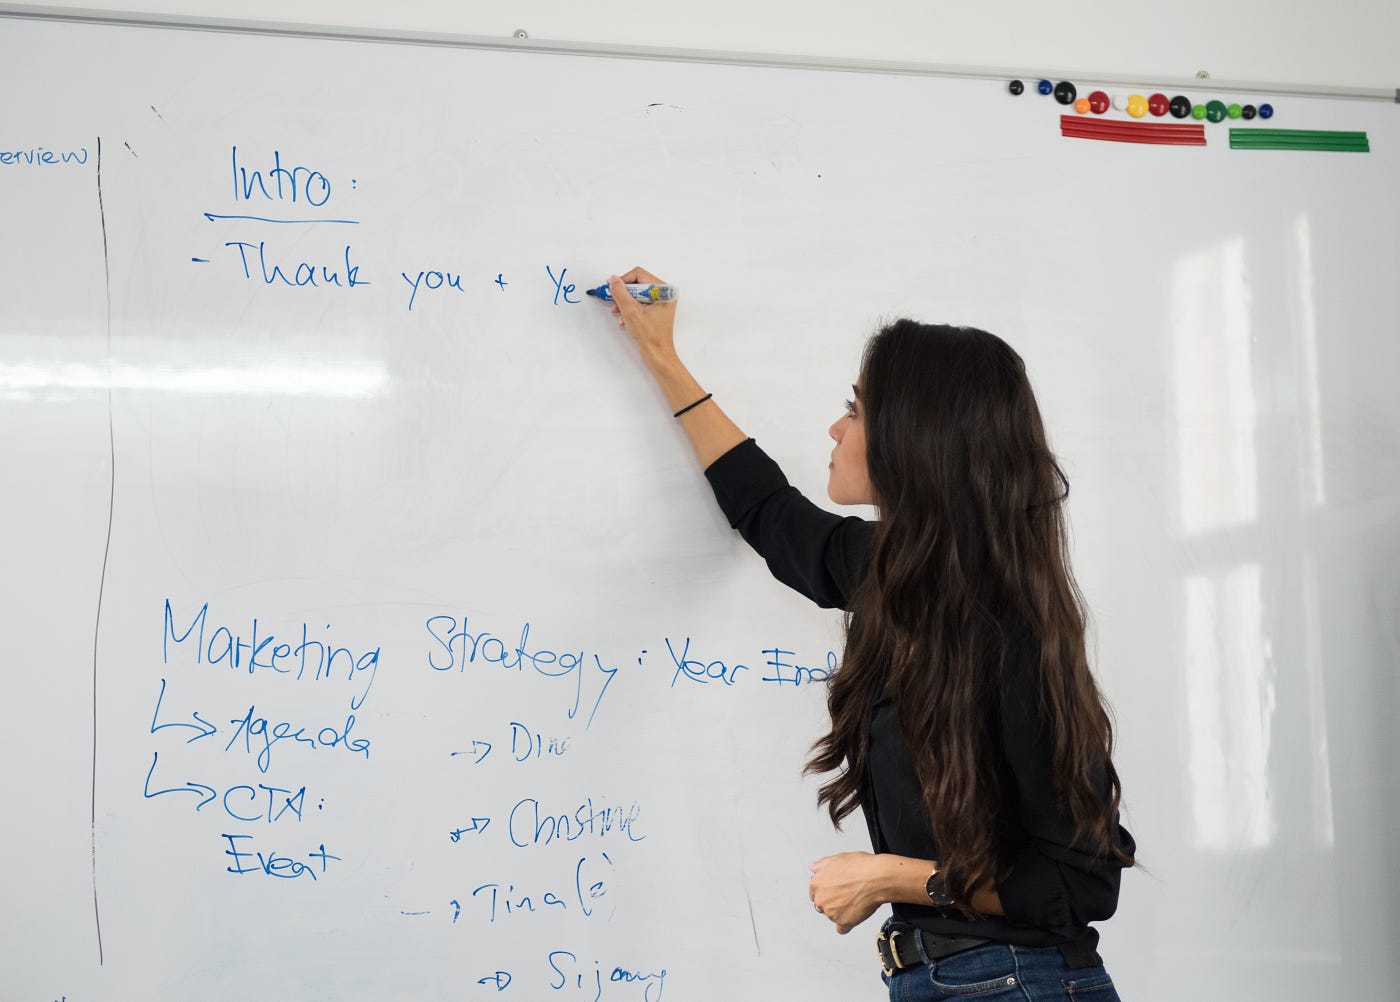 erview
Intro:
- Thank you + Ye
Marketing Strategy: Year End
Agenda
CTA:
Event
Christine
Tina (2)